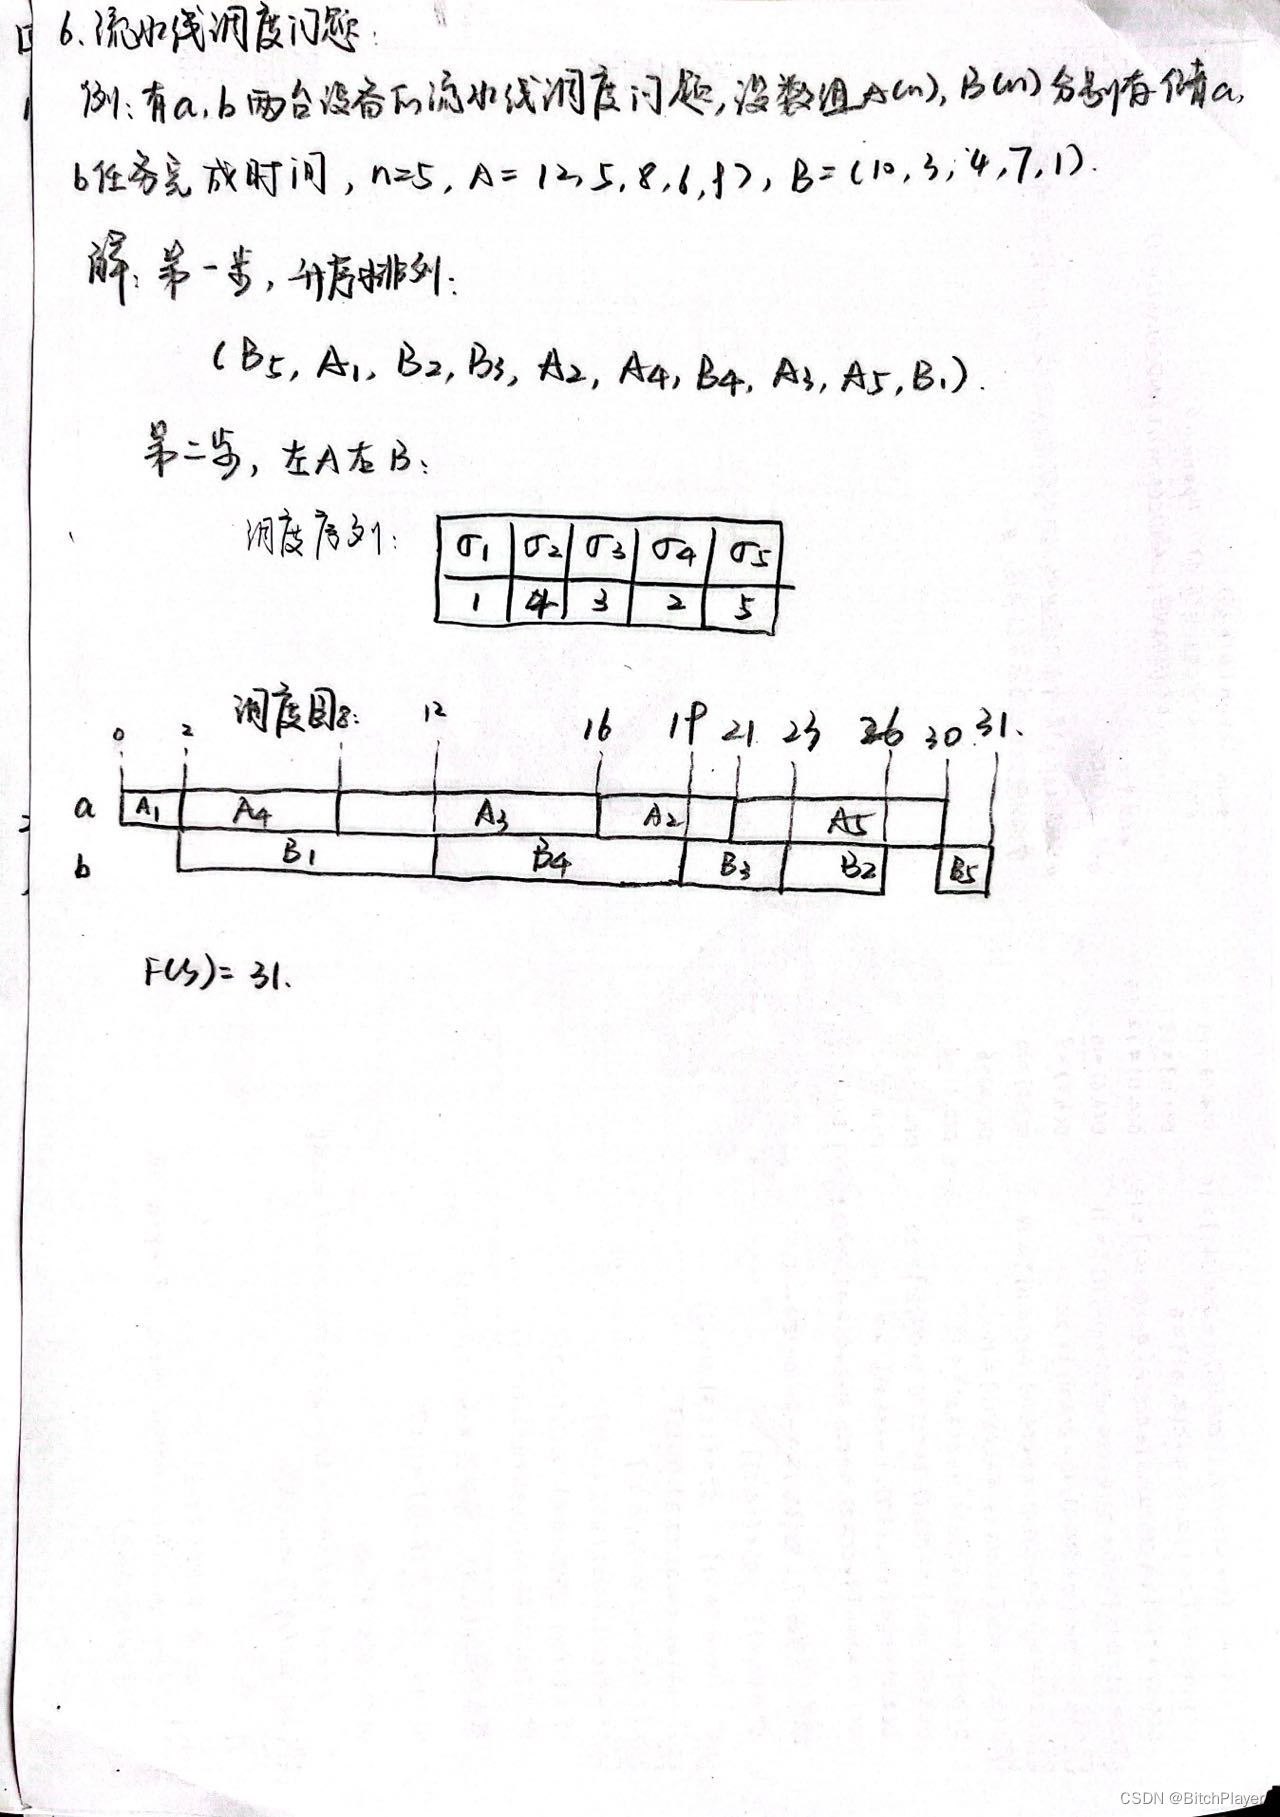 6、流水线调度问题:
例:有a,b两台设备的流水线调度问题,设数组A(n),B(n)分别存储a,
b任务完成时间,n=5,A=(2,5,8,6,9),B=(10,3,4,7,1).
解:第一步,升序排列:
(B5, A1, B2, B3, A2, A4, B4, A3, A5, B1).
第二步,左A右B:
调度序列:
σ1 σ2 σ3 σ4 σ5
1 4 3 2 5
调度图:
0 2 8 12 16 19 21 23 26 30 31.
a A1 A4 A3 A2 A5
b B1 B4 B3 B2 B5
F(S)=31.
CSDN @BitchPlayer